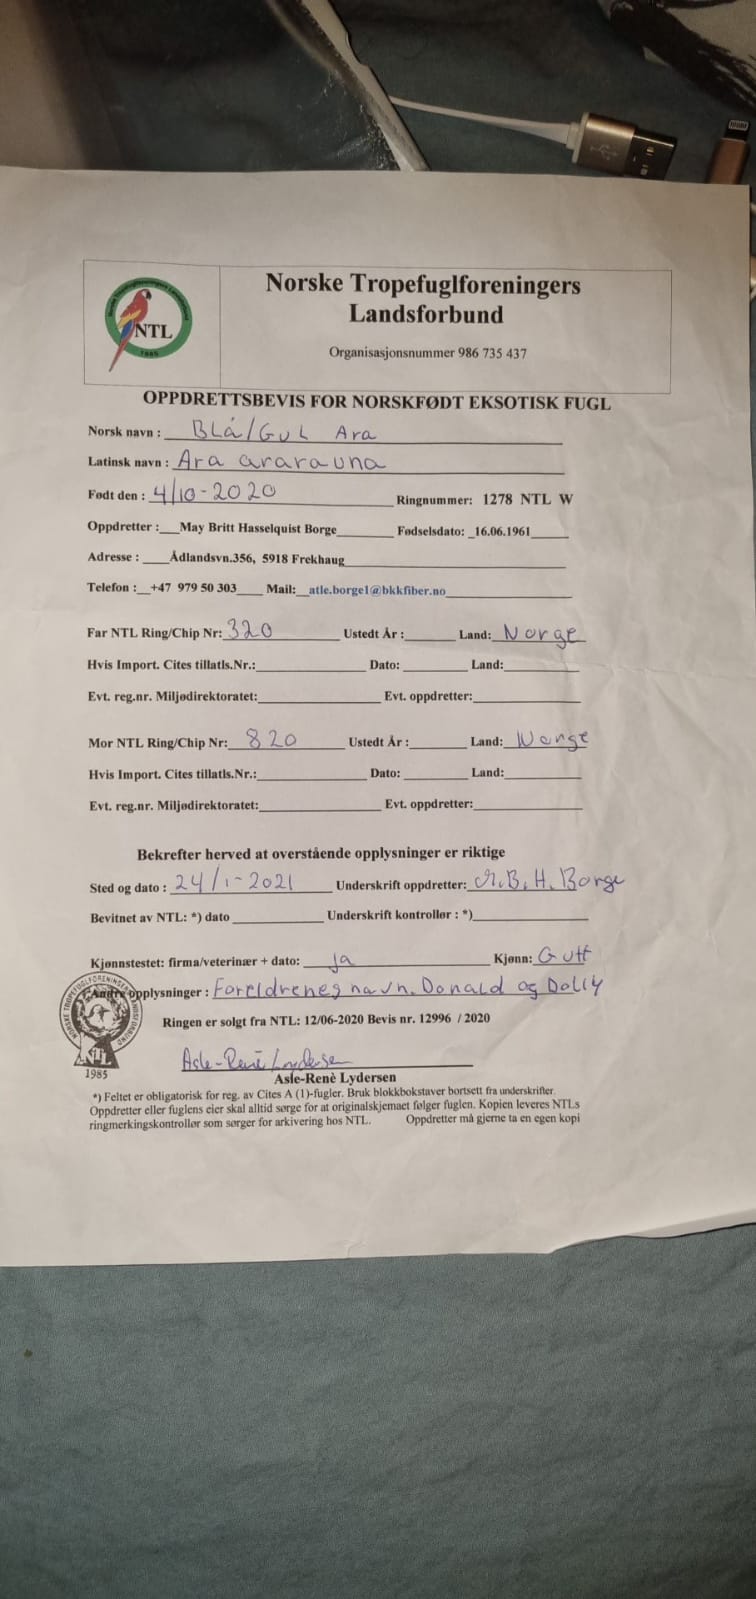 Norske Tropefuglforeningers Landsforbund
NTL
1985
Norske Tropefuglforeningers
Landsforbund
Organisasjonsnummer 986 735 437
OPPDRETTSBEVIS FOR NORSKFØDT EKSOTISK FUGL
Norsk navn : BLå/GUL Ara
Latinsk navn : Ara ararauna
Født den : 4/10-2020 Ringnummer: 1278 NTL W
Oppdretter :___May Britt Hasselquist Borge________ Fødselsdato: _16.06.1961_____
Adresse : ____Ådlandsvn.356, 5918 Frekhaug
Telefon :__+47 979 50 303____ Mail:__atle.borge1@bkkfiber.no
Far NTL Ring/Chip Nr: 320 Ustedt År :_______ Land: Norge
Hvis Import. Cites tillatls.Nr.:_______________ Dato: _________ Land:__________
Evt. reg.nr. Miljødirektoratet:_________________ Evt. oppdretter:______________
Mor NTL Ring/Chip Nr: 820 Ustedt År :________ Land: Norge
Hvis Import. Cites tillatls.Nr.:_______________ Dato: _________ Land:__________
Evt. reg.nr. Miljødirektoratet:_________________ Evt. oppdretter:______________
Bekrefter herved at overstående opplysninger er riktige
Sted og dato : 24/1-2021 Underskrift oppdretter: M.B.H. Borge
Bevitnet av NTL: *) dato ____________ Underskrift kontrollør : *)_______________
Kjønnstestet: firma/veterinær + dato: ja Kjønn: Gutt
Andre opplysninger : Foreldrenes navn. Donald og Dolly
Ringen er solgt fra NTL: 12/06-2020 Bevis nr. 12996 / 2020
NTL
1985
Asle-René Lydersen
Asle-Renè Lydersen
*) Feltet er obligatorisk for reg. av Cites A (1)-fugler. Bruk blokkbokstaver bortsett fra underskrifter.
Oppdretter eller fuglens eier skal alltid sørge for at originalskjemaet følger fuglen. Kopien leveres NTLs
ringmerkingskontrollør som sørger for arkivering hos NTL. Oppdretter må gjerne ta en egen kopi